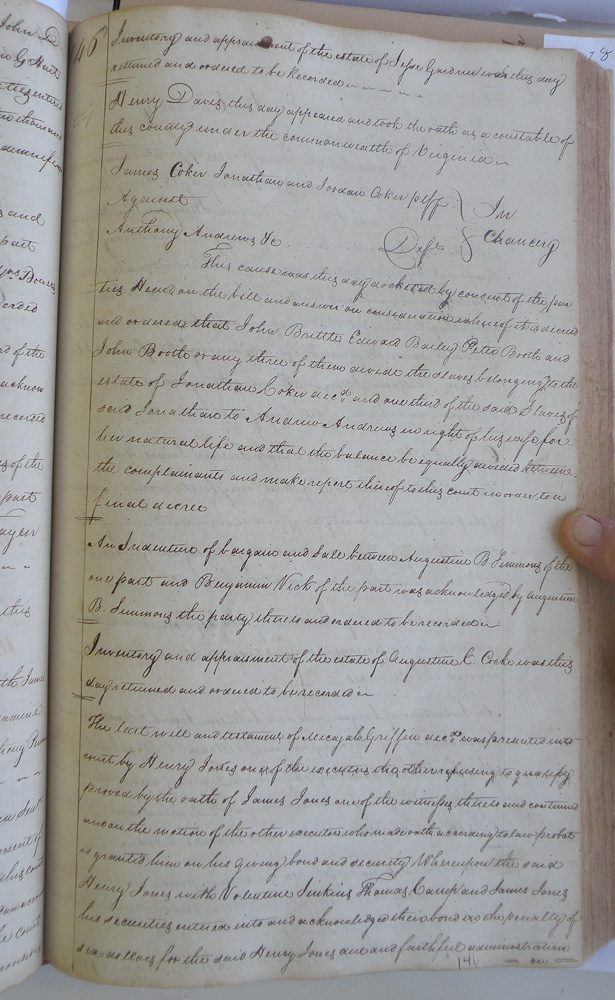 46
Inventory and appraisment of the estate of Jesse Gardner was this day
returned and ordered to be Recorded
Henry Davis this day appeared and took the oath as a constable of
this county under the commonwealth of Virginia
James Coker Jonathan and Jordan Coker pltfs
Against
In
Anthony Andrews &c Defts
Chancery
This cause was this day docketed by concent of the par
ties Heard on the bill and answer on consideration whereof it is decreed
and ordered that John Britto Edward Bailey Peter Booth and
John Booth or any three of them devide the slaves belonging to the
estate of Jonathan Coker decd and one third of the said Slaves of
said Jonathan to Andrew Andrews in right of his wife for
her natural life and that the balance be equally devided between
the complainants and make report thereof to this court in order to a
final decree
An Indenture of bargain and sale between Augustine B Simmons of the
one part and Benjamin Nick of the part was acknowledged by augustine
B. Simmons the party thereto and ordered to be recorded
Inventory and appraisment of the estate of Augustine C. Cocke was this
day returned and ordered to be recorded
The last will and testament of Micajah Griffin decd was presented into
court by Henry Jones one of the executors the other refusing to qualify
proved by the oath of James Jones one of the witnesses thereto and continued
and on the motion of the other executor who made oath according to law probat
is granted him on his giving bond and security Whereupon the said
Henry Jones with Valentine Jenkins Thomas Camp and James Jones
his securities entered into and acknowledged their bond in the penalty of
dollars for the said Henry Jones due and faithful administration
146 on